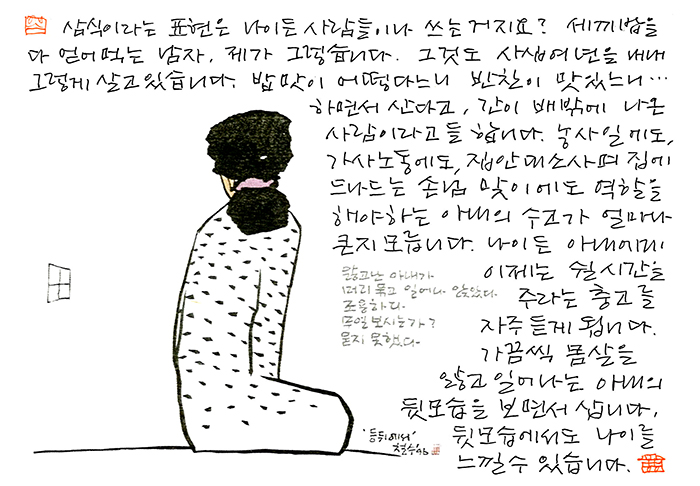 삼식이라는 표현은 나이든 사람들이나 쓰는거지요? 세끼밥을
다 얻어먹는 남자. 제가 그렇습니다. 그것도 사생여년을 내내
그렇게 살고있습니다. 밥맛이 어떻다느니 반찬이 맛있느니…
하면서 산다고, 간이 배밖에 나온
사람이라고들 합니다. 농사일에도,
가사노동에도, 집안대소사며 집에
드나드는 손님 맞이에도 역할을
해야하는 아내의 수고가 얼마나
큰지 모릅니다. 나이든 아내에게
이제는 쉴시간을
주라는 충고를
자주 듣게 됩니다.
가끔씩 몸살을
앓고 일어나는 아내의
뒷모습을 보면서 삽니다.
뒷모습에서도 나이를
느낄수 있습니다.
앓고난 아내가
머리 묶고 일어나 앉았다.
조용하다.
무얼 보시는가?
묻지 못했다.
'등뒤에서'
철수 96